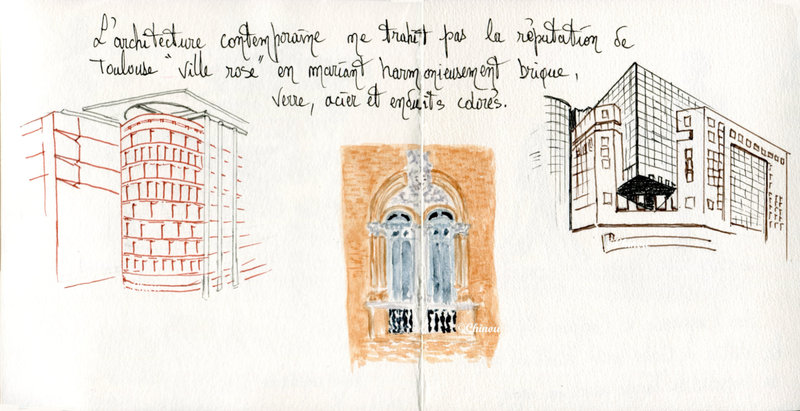 L'architecture contemporaine ne trahit pas la réputation de
Toulouse "ville rose" en mariant harmonieusement brique,
verre, acier et enduits colorés.
©Chinou